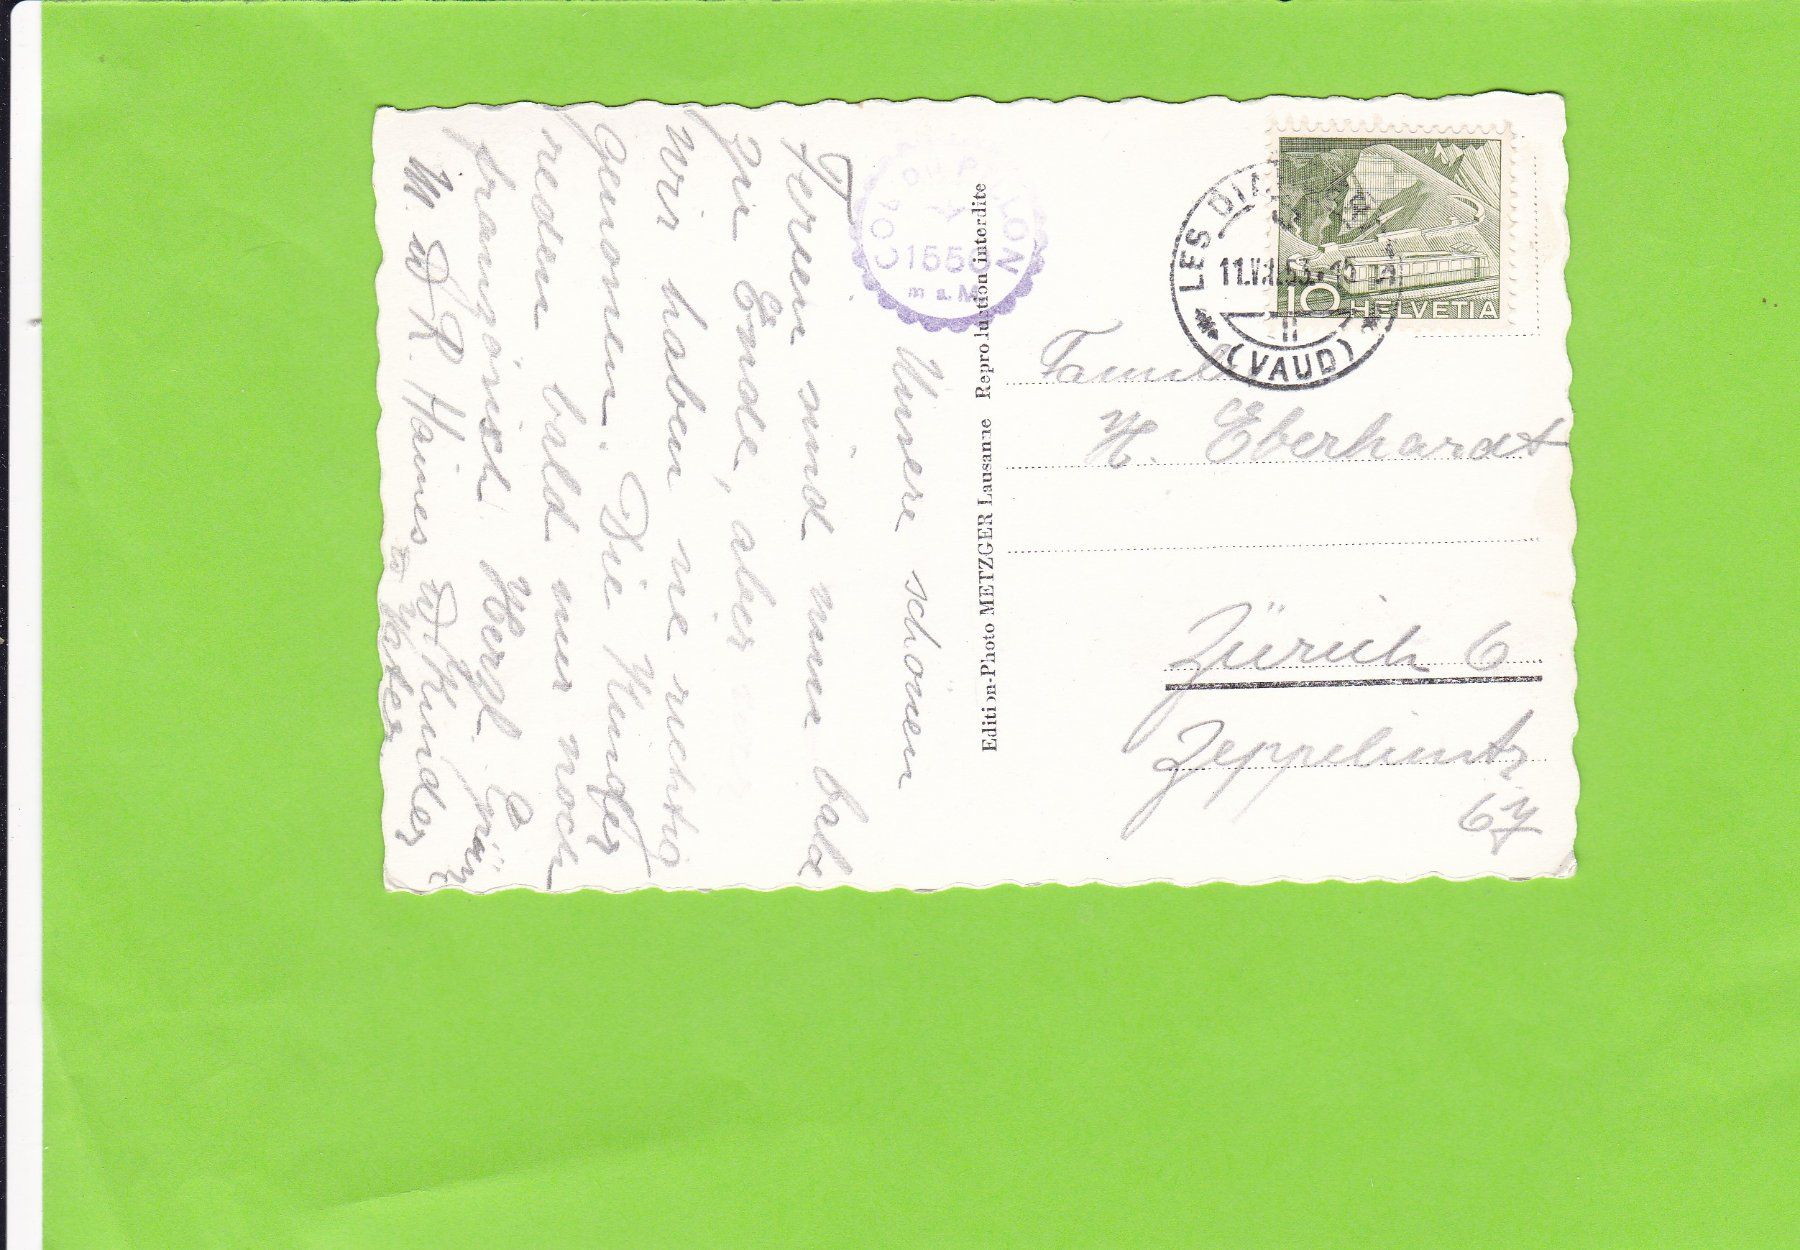 Unsere schönen
Ferien sind nun bald
zu Ende, aber
wir haben sie richtig
genossen. Die Kinder
reden bald nur noch
französisch. Herzl. Grüße
M. u R. Haines u Kinder
COL DU PILLON
1550
m s. M
Edition-Photo METZGER Lausanne Reproduction interdite
LES DIABLERETS
11.VIII.53.-15
(VAUD)
10 HELVETIA
Familie
H. Eberhardt
Zürich 6
Zeppelinstr
67